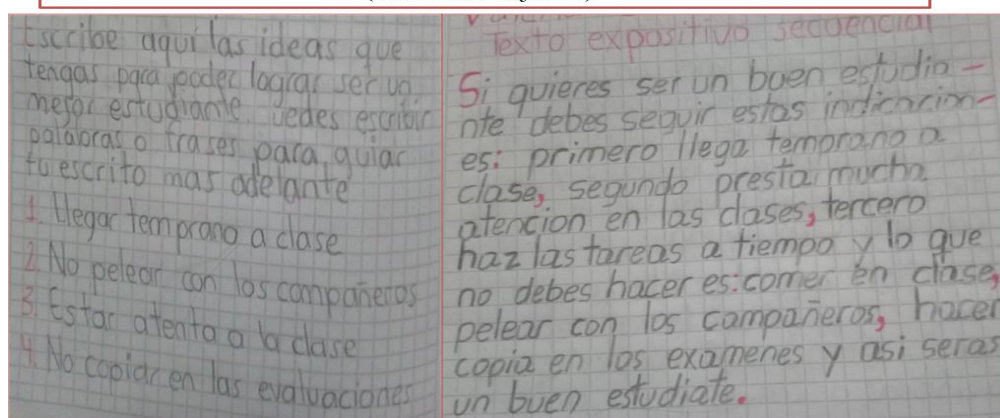 Escribe aqui las ideas que
tengas para poder lograr ser un
mejor estudiante. uedes escribir
palabras o frases para guiar
tu escrito mas adelante
1. Llegar temprano a clase
2. No pelear con los compañeros
3. Estar atenta a la clase
4. No copiar en las evaluaciones
Texto expositivo secuencial
Si quieres ser un buen estudia-
nte debes seguir estas indicacion-
es: primero llega temprano a
clase, segundo presta mucha
atencion en las clases, tercero
haz las tareas a tiempo y lo que
no debes hacer es: comer en clase,
pelear con los compañeros, hacer
copia en los examenes y asi seras
un buen estudiate.